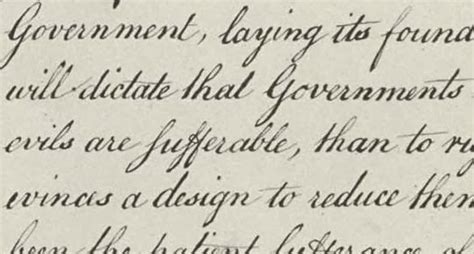 Government, laying its found
will dictate that Governments
evils are sufferable, than to ri
evinces a design to reduce them
been the patient sufferance of